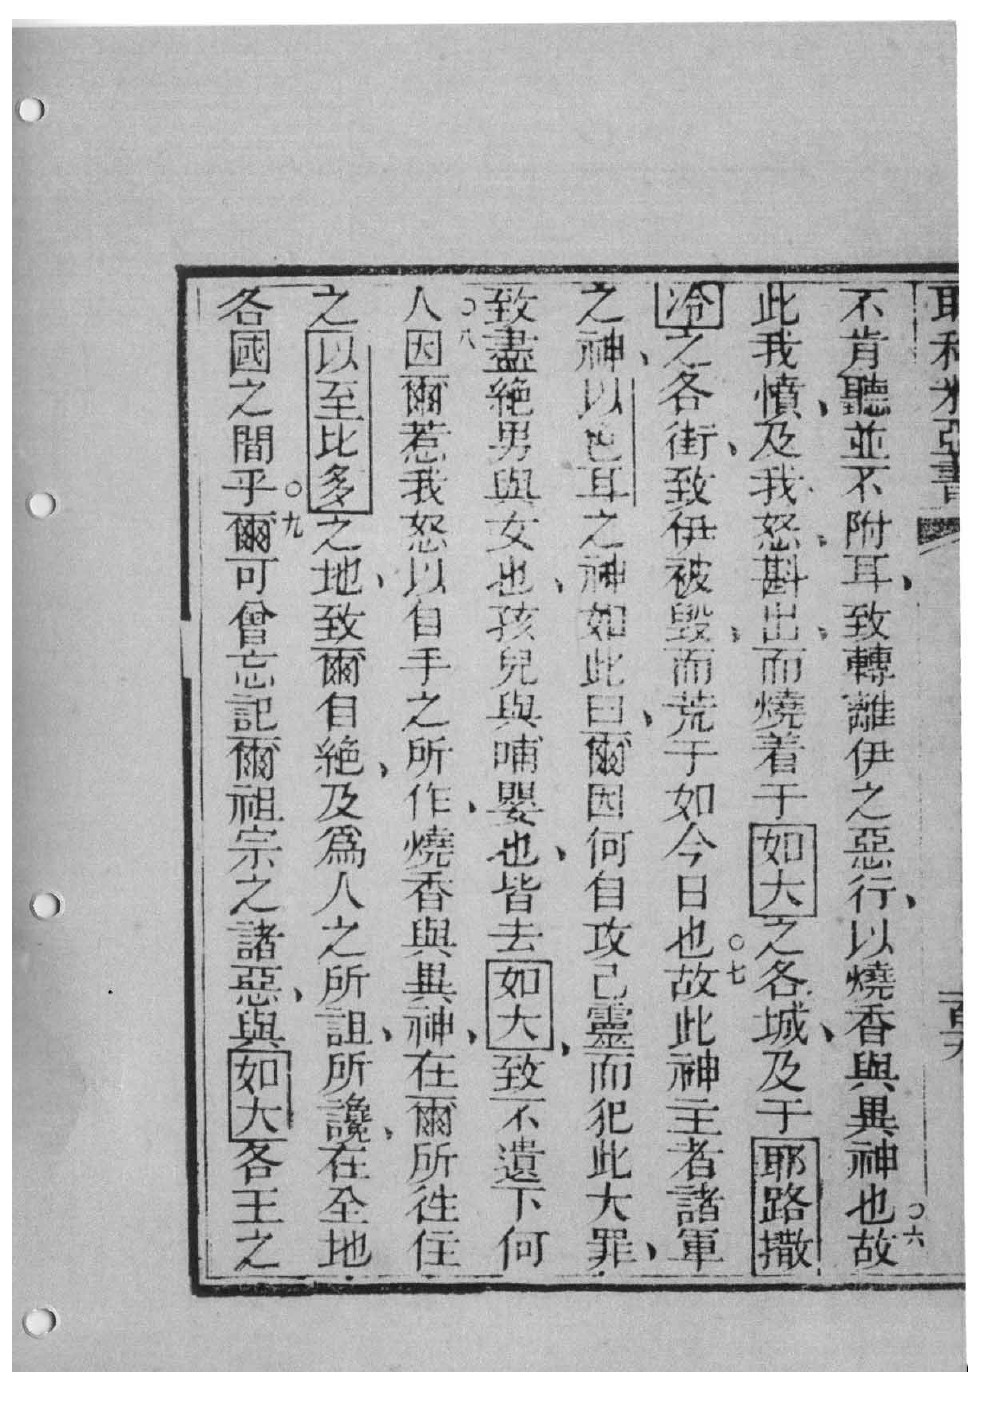 耶利米亞書 一百九
不肯聽並不附耳、致轉離伊之惡行、以燒香與異神也○六故
此我憤、及我怒、斟出、而燒着于如大之各城、及于耶路撒
冷之各街、致伊被毀、而荒于如今日也○七故此神主者諸軍
之神、以色耳之神如此曰、爾因何自攻己靈而犯此大罪、
致盡絕男與女也、孩兒與哺嬰也、皆去如大、致不遺下何
人○八因爾惹我怒以自手之所作、燒香與異神、在爾所徃住
之以至比多之地、致爾自絕、及為人之所詛、所讒、在全地
各國之間乎○九爾可曾忘記爾祖宗之諸惡、與如大各王之